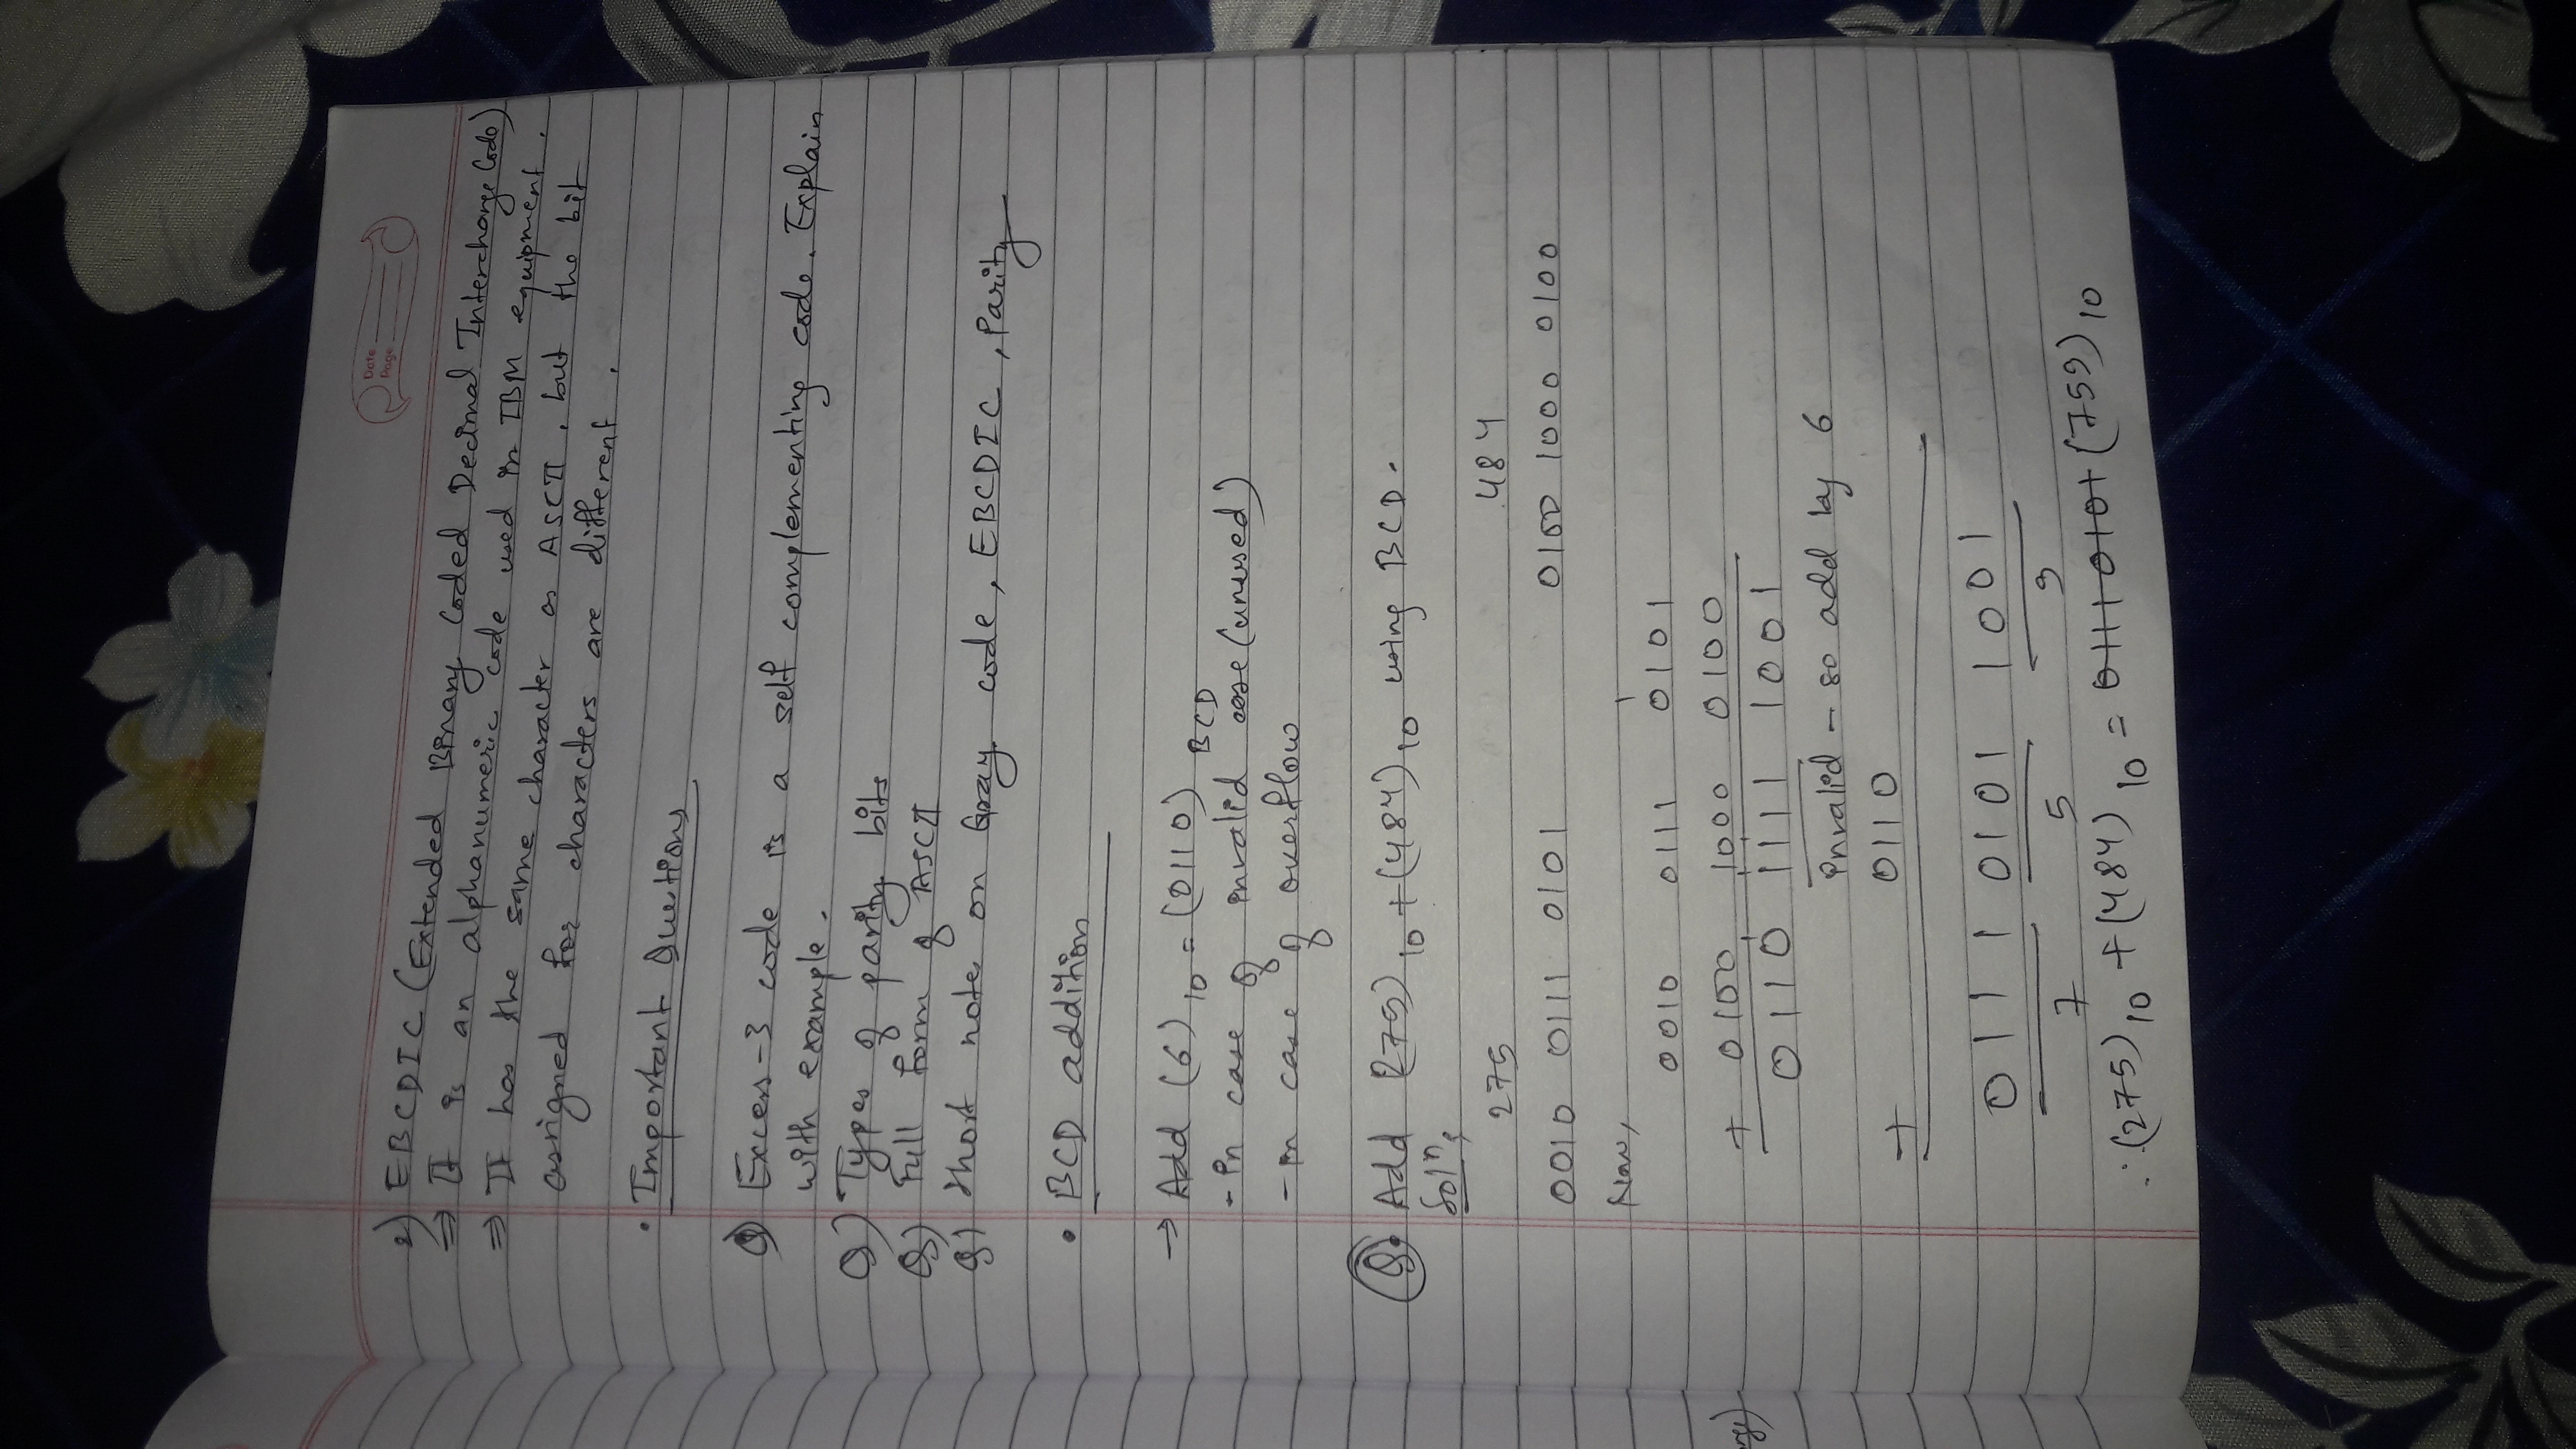 Date
Page
2) EBCDIC (Extended Binary Coded Decimal Interchange Code)
⇒ It is an alphanumeric code used in IBM equipment.
⇒ It has the same character as ASCII, but the bit
assigned for characters are different.
• Important Questions
Q) Excess-3 code is a self complementing code. Explain
with example.
Q) Types of parity bits
Q) Full form of ASCII
Q) Short notes on Gray code, EBCDIC, Parity
• BCD addition
→ Add (6)10 = (0110) BCD
- in case of invalid case (unused)
- in case of overflow
Q. Add (275)10 + (484)10 using BCD.
Solⁿ;
275 484
0010 0111 0101 0100 1000 0100
Now,
0010 0111 0101
+ 0100 1000 0100
0110 1111 1001
invalid - so add by 6
+ 0110
0111 0101 1001
7 5 9
∴ (275)10 + (484)10 = 0111 0101 (759)10